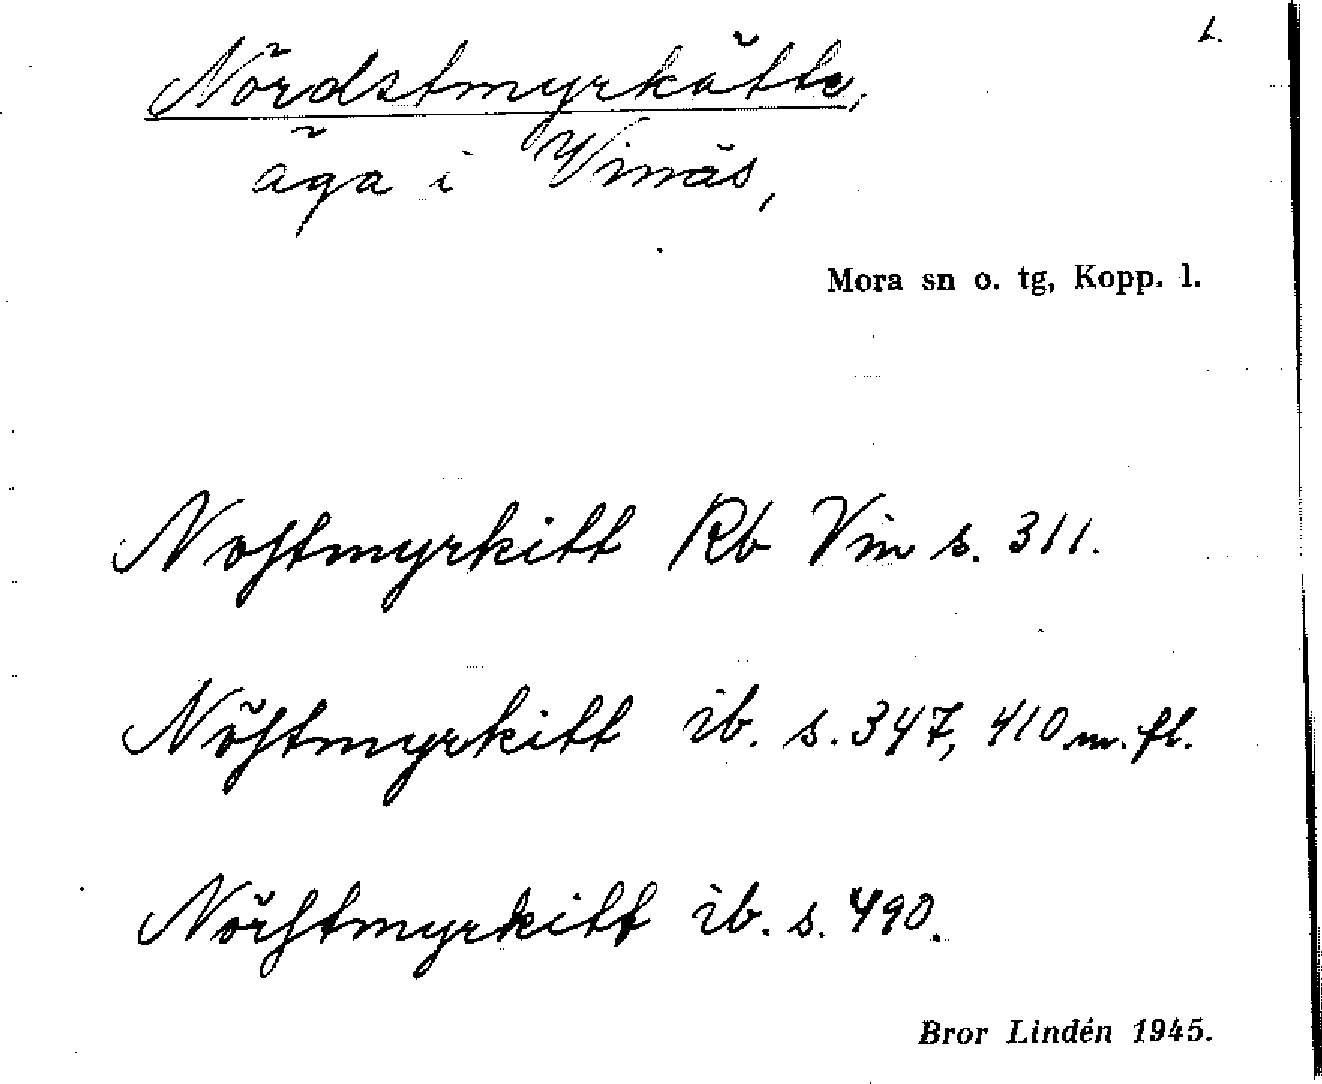 L.
Nördstmyrkätte,
äga i Vinäs,
Mora sn o. tg, Kopp. l.
Nostmyrkitt Rb Vin s. 311.
Nöstmyrkitt ib. s. 347, 410 m. fl.
Nörstmyrkitt ib. s. 490.
Bror Lindén 1945.